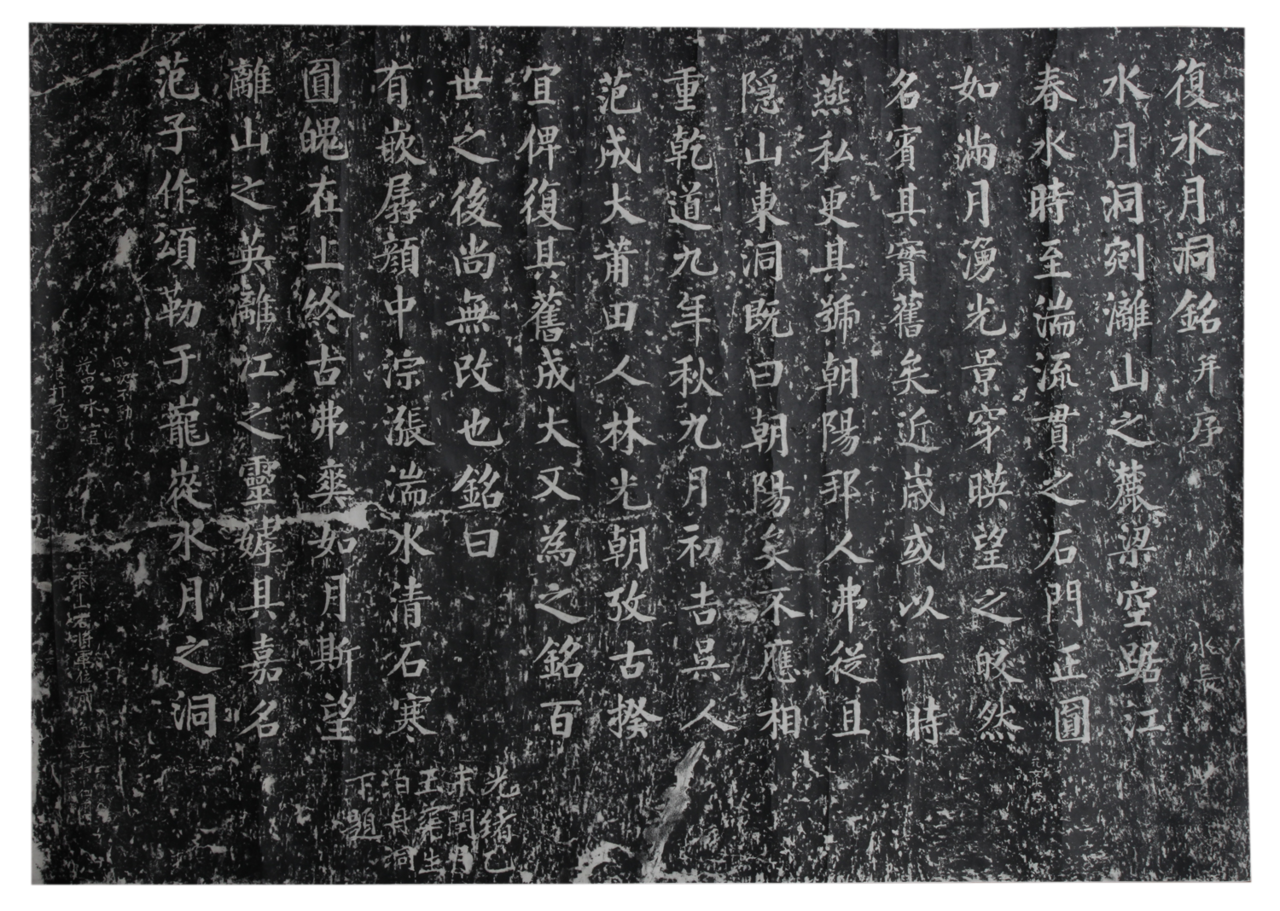 復水月洞銘并序
水月洞剜灕山之麓梁空踞江
春水時至湍流貫之石門正圓
如滿月湧光景穿暎望之皎然
名賓其實舊矣近歲或以一時
燕私更其號朝陽邦人弗從且
隱山東洞既曰朝陽矣不應相
重乾道九年秋九月初吉吳人
范成大莆田人林光朝攷古揆
宜俾復其舊成大又為之銘百
世之後尚無改也銘曰
有嵌孱顏中淙漲湍水清石寒
圓魄在上終古弗爽如月斯望
灕山之英灕江之靈嫭其嘉名
范子作頌勒于巃嵸水月之洞
水長
光緒乙
未閏月
王
泊舟洞
下題